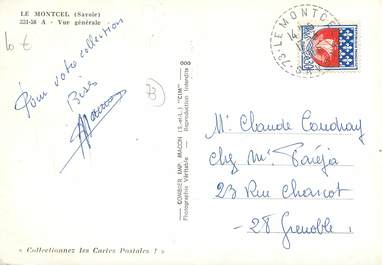 LE MONTCEL (Savoie)
231-58 A - Vue générale
10 €
Pour votre collection
Bises
73
COMBIER IMP. MACON (S.-et-L.) "CIM"
Photographie Véritable - Reproduction Interdite
73-LE MONTCEL
14
Mr Claude Coudray
chez Mr
23 Rue Charcot
- 28 Grenoble
« Collectionnez les Cartes Postales ! »